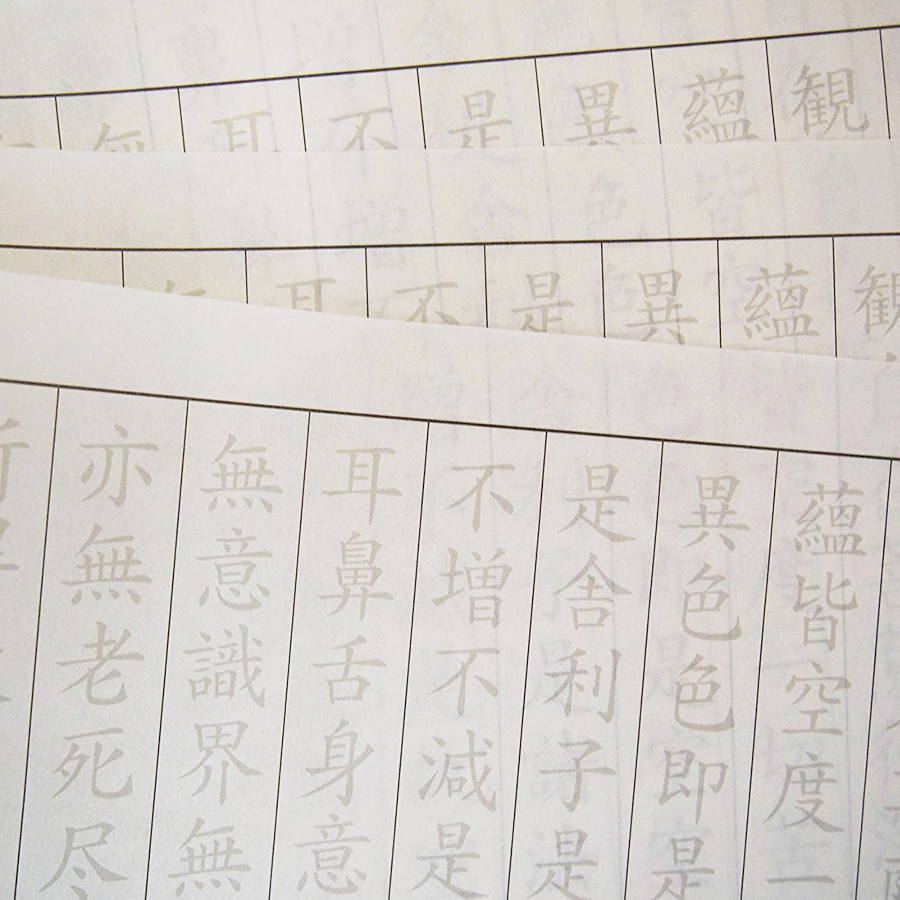 観
蘊
異
是
不
耳
無
観
蘊
異
是
不
耳
無
蘊皆空度一
異色色即是
是舎利子是
不増不減是
耳鼻舌身意
無意識界無
亦無老死尽